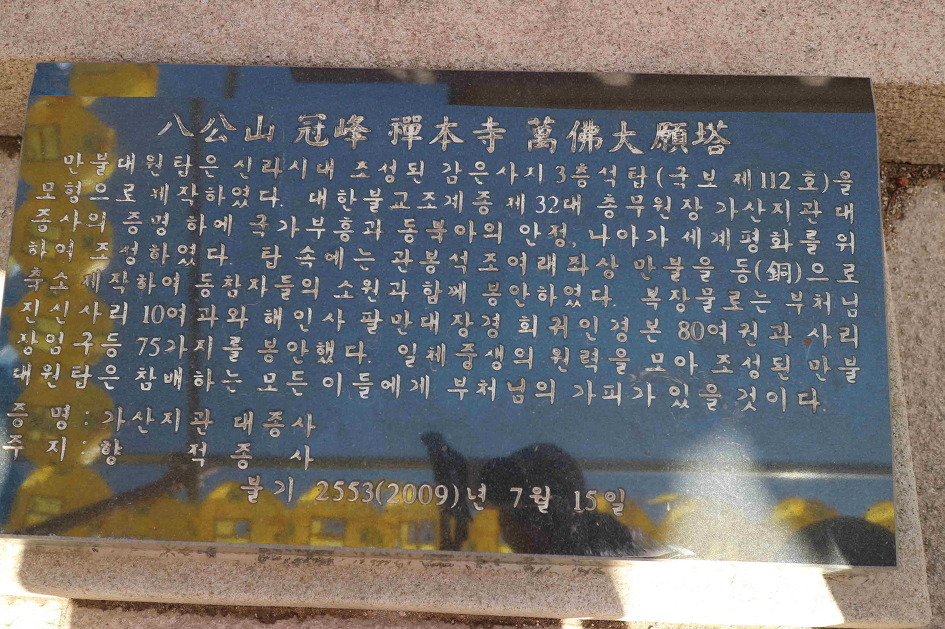 八公山 冠峰 禪本寺 萬佛大願塔
만불대원탑은 신라시대 조성된 감은사지 3층석탑(국보 제112호)을
모형으로 제작하였다. 대한불교조계종 제 32대 총무원장 가산지관 대
종사의 증명 하에 국가부흥과 동북아의 안정, 나아가 세계평화를 위
하여 조성하였다. 탑 속에는 관봉석조여래좌상 만불을 동(銅)으로
축소제작하여 동참자들의 소원과 함께 봉안하였다. 복장물로는 부처님
진신사리 10여과와 해인사 팔만대장경 희귀인경본 80여권과 사리
장엄구등 75가지를 봉안했다. 일체중생의 원력을 모아 조성된 만불
대원탑은 참배하는 모든이들에게 부처님의 가피가 있을 것이다.
증 명 : 가산지관 대종사
주 지 : 향 적 종 사
불기 2553(2009)년 7월 15일